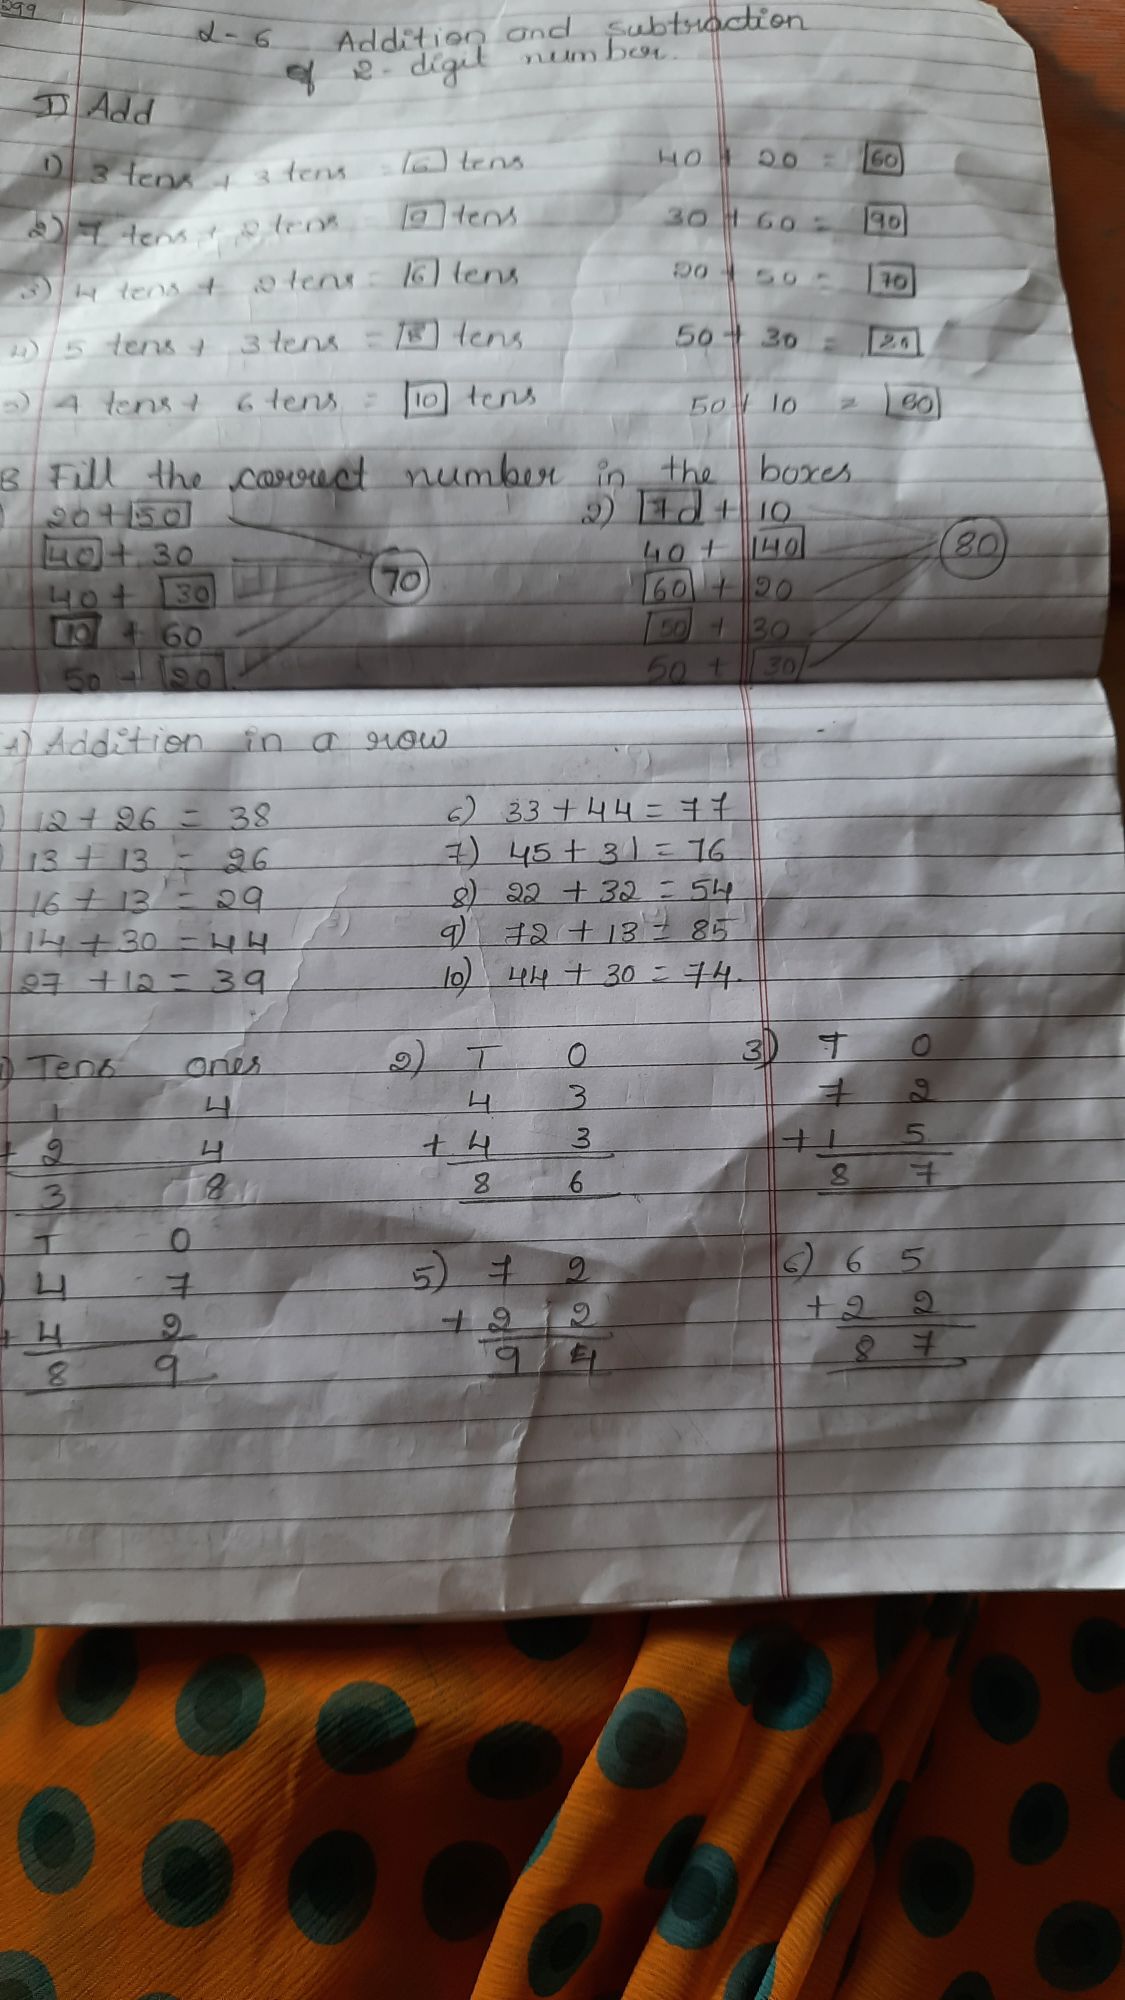 299
L-6 Addition and subtraction
of 2-digit number.
I) Add
1) 3 tens + 3 tens = 6 tens 40 + 20 = 60
2) 7 tens + 2 tens = 9 tens 30 + 60 = 90
3) 4 tens + 2 tens = 6 tens 20 + 50 = 70
4) 5 tens + 3 tens = 8 tens 50 + 30 =
5) 4 tens + 6 tens = 10 tens 50 + 10 = 60
B Fill the correct number in the boxes
20 + 50 2) 70 + 10
40 + 30 40 + 40
40 + 30 70 60 + 20 80
10 + 60 50 + 30
50 + 20 50 + 30
A) Addition in a row
12 + 26 = 38 6) 33 + 44 = 77
13 + 13 = 26 7) 45 + 31 = 76
16 + 13 = 29 8) 22 + 32 = 54
14 + 30 = 44 9) 72 + 13 = 85
27 + 12 = 39 10) 44 + 30 = 74.
1) Tens ones 2) T O 3) T O
1 4 4 3 7 2
+ 2 4 + 4 3 + 1 5
3 8 8 6 8 7
T O
4 7 5) 7 2 6) 6 5
+ 4 2 + 2 2 + 2 2
8 9 9 4 8 7